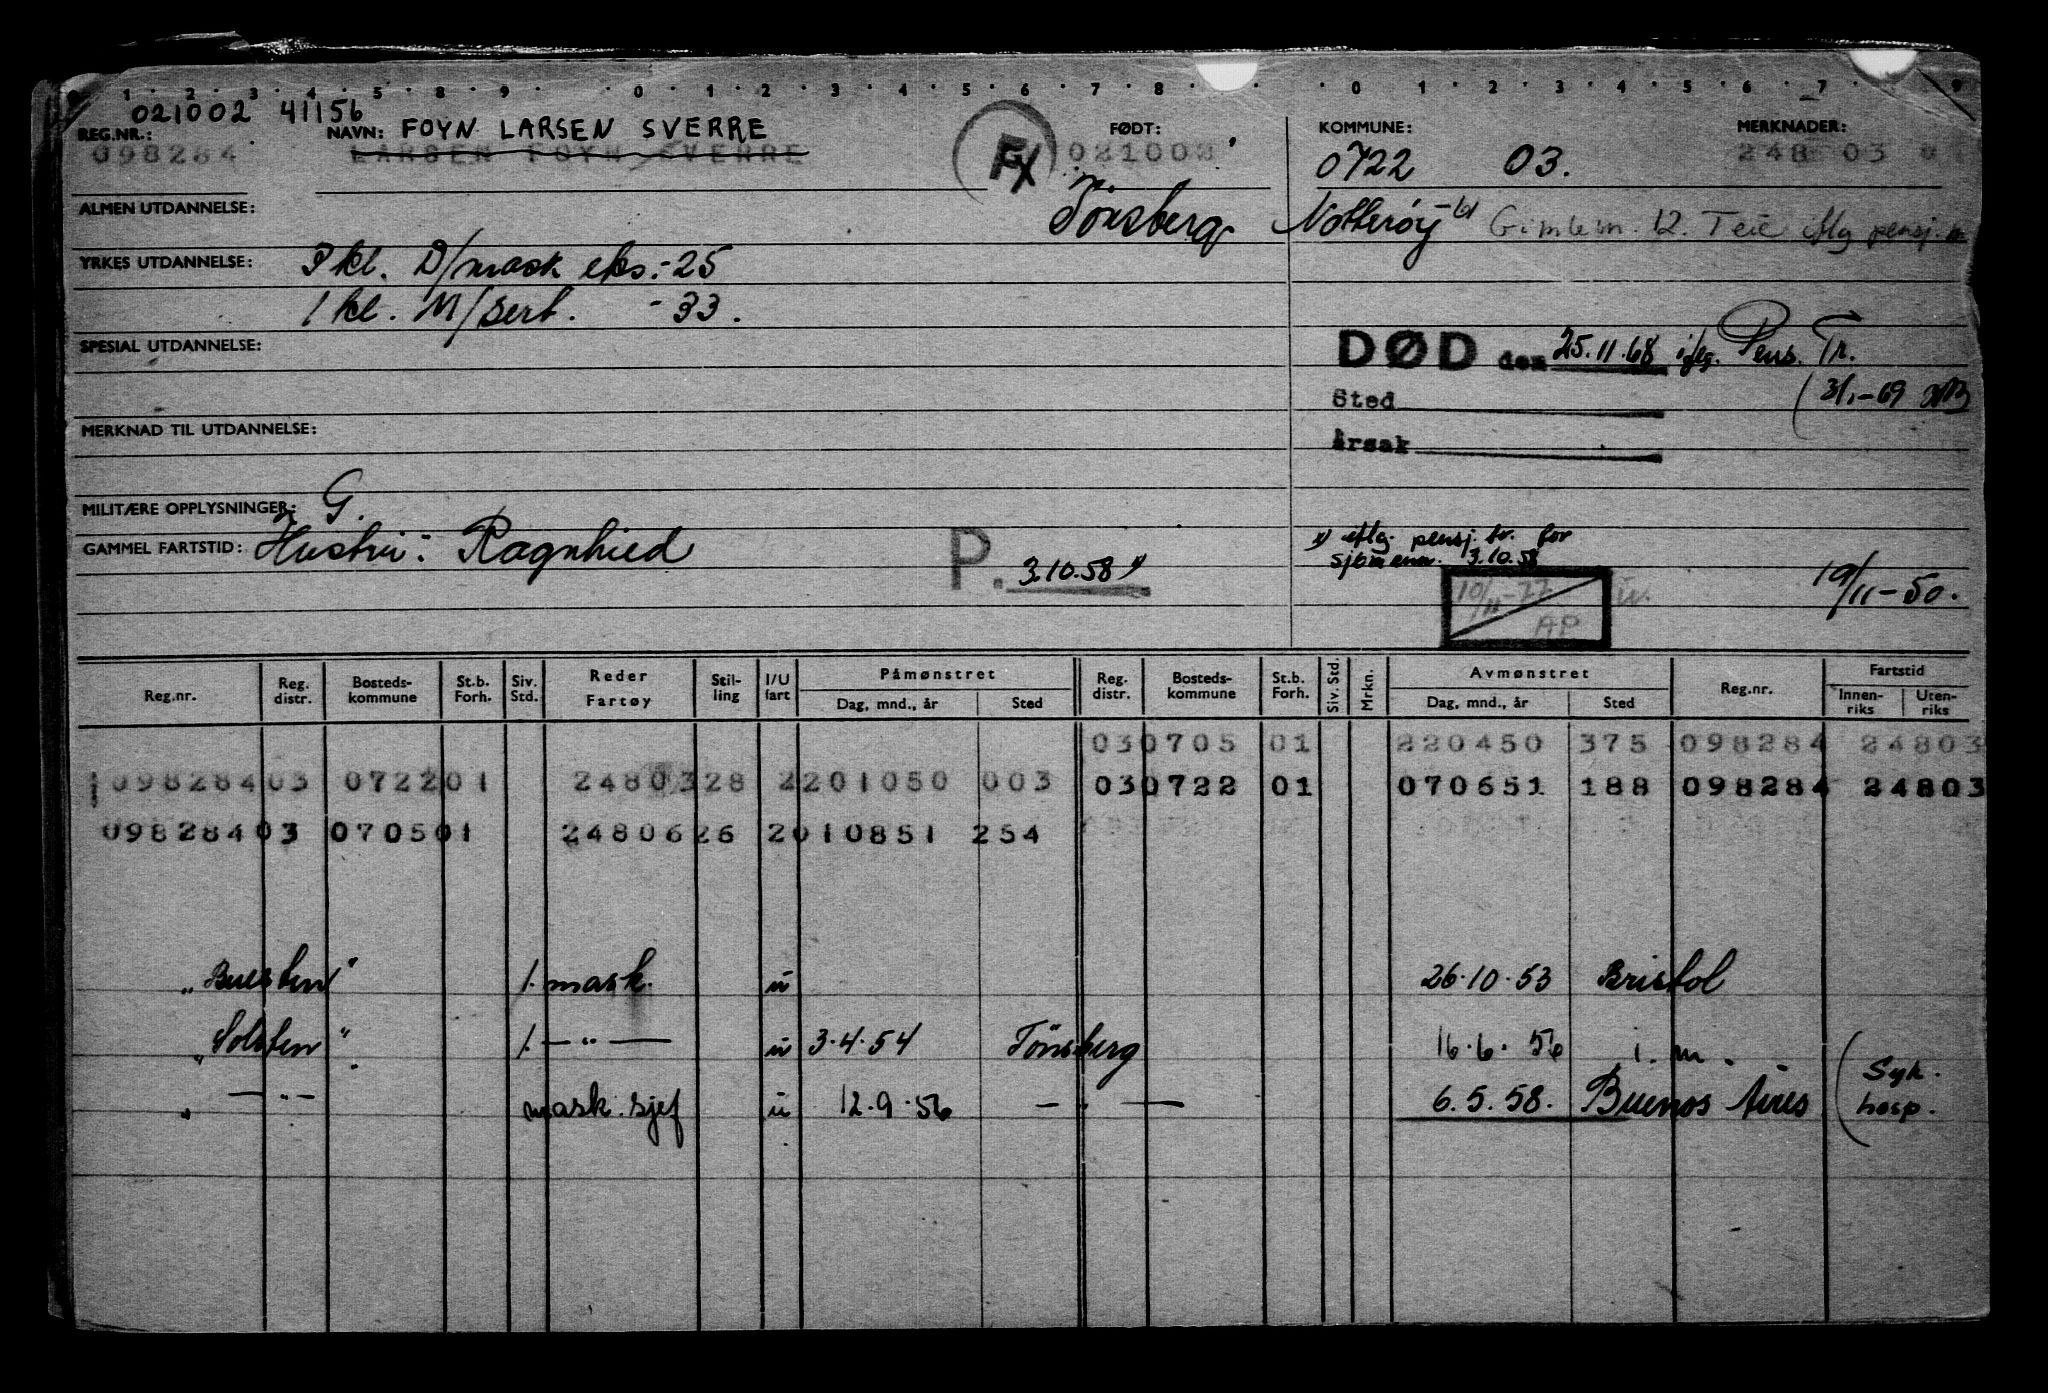 1 2 3 4 5 8 9 0 1 2 3 4 5 6 7 8 0 1 2 3 4 5 6 7 9
021002 41156
REG.NR.: NAVN: FOYN LARSEN SVERRE FØDT: KOMMUNE: MERKNADER:
098284 LARSEN FOYN SVERRE 021002 0722 03. 248 03
ALMEN UTDANNELSE: Tönsberg Nøtterøy Gimlevn. 12. Teie iflg pensj.
YRKES UTDANNELSE: 2 kl. D/mask eks. -25
1 kl. M/sert. -33.
SPESIAL UTDANNELSE: DØD den 25.11.68 iflg. Pens. Tr.
Sted (3/1-69
MERKNAD TIL UTDANNELSE: Årsak
MILITÆRE OPPLYSNINGER: G.
GAMMEL FARTSTID: Hustru: Ragnhild P. 3.10.58 x) x) iflg. pensj. tr. for
sjömenn. 3.10.58
10/11-77 AP 19/11-50.
Reg.nr. Reg. distr. Bosteds-kommune St.b. Forh. Siv. Std. Reder Fartøy Stil-ling I/U fart Påmønstret Dag, mnd., år Sted Reg. distr. Bosteds-kommune St.b. Forh. Siv. Std. Mrkn. Avmønstret Dag, mnd., år Sted Reg.nr. Fartstid Innen-riks Uten-riks
030705 01 220450 375 098284 24803
09828403 072201 2480328 2201050 003 030722 01 070651 188 098284 24803
09828403 070501 2480626 2010851 254
"Buesten" 1. mask. u 26.10.53 Bristol
"Solsten". 1. — " — u 3.4.54 Tönsberg 16.6.56 i.m. (Syk.
" — " — mask. sjef u 12.9.56 — " — 6.5.58. Buenos Aires hosp.